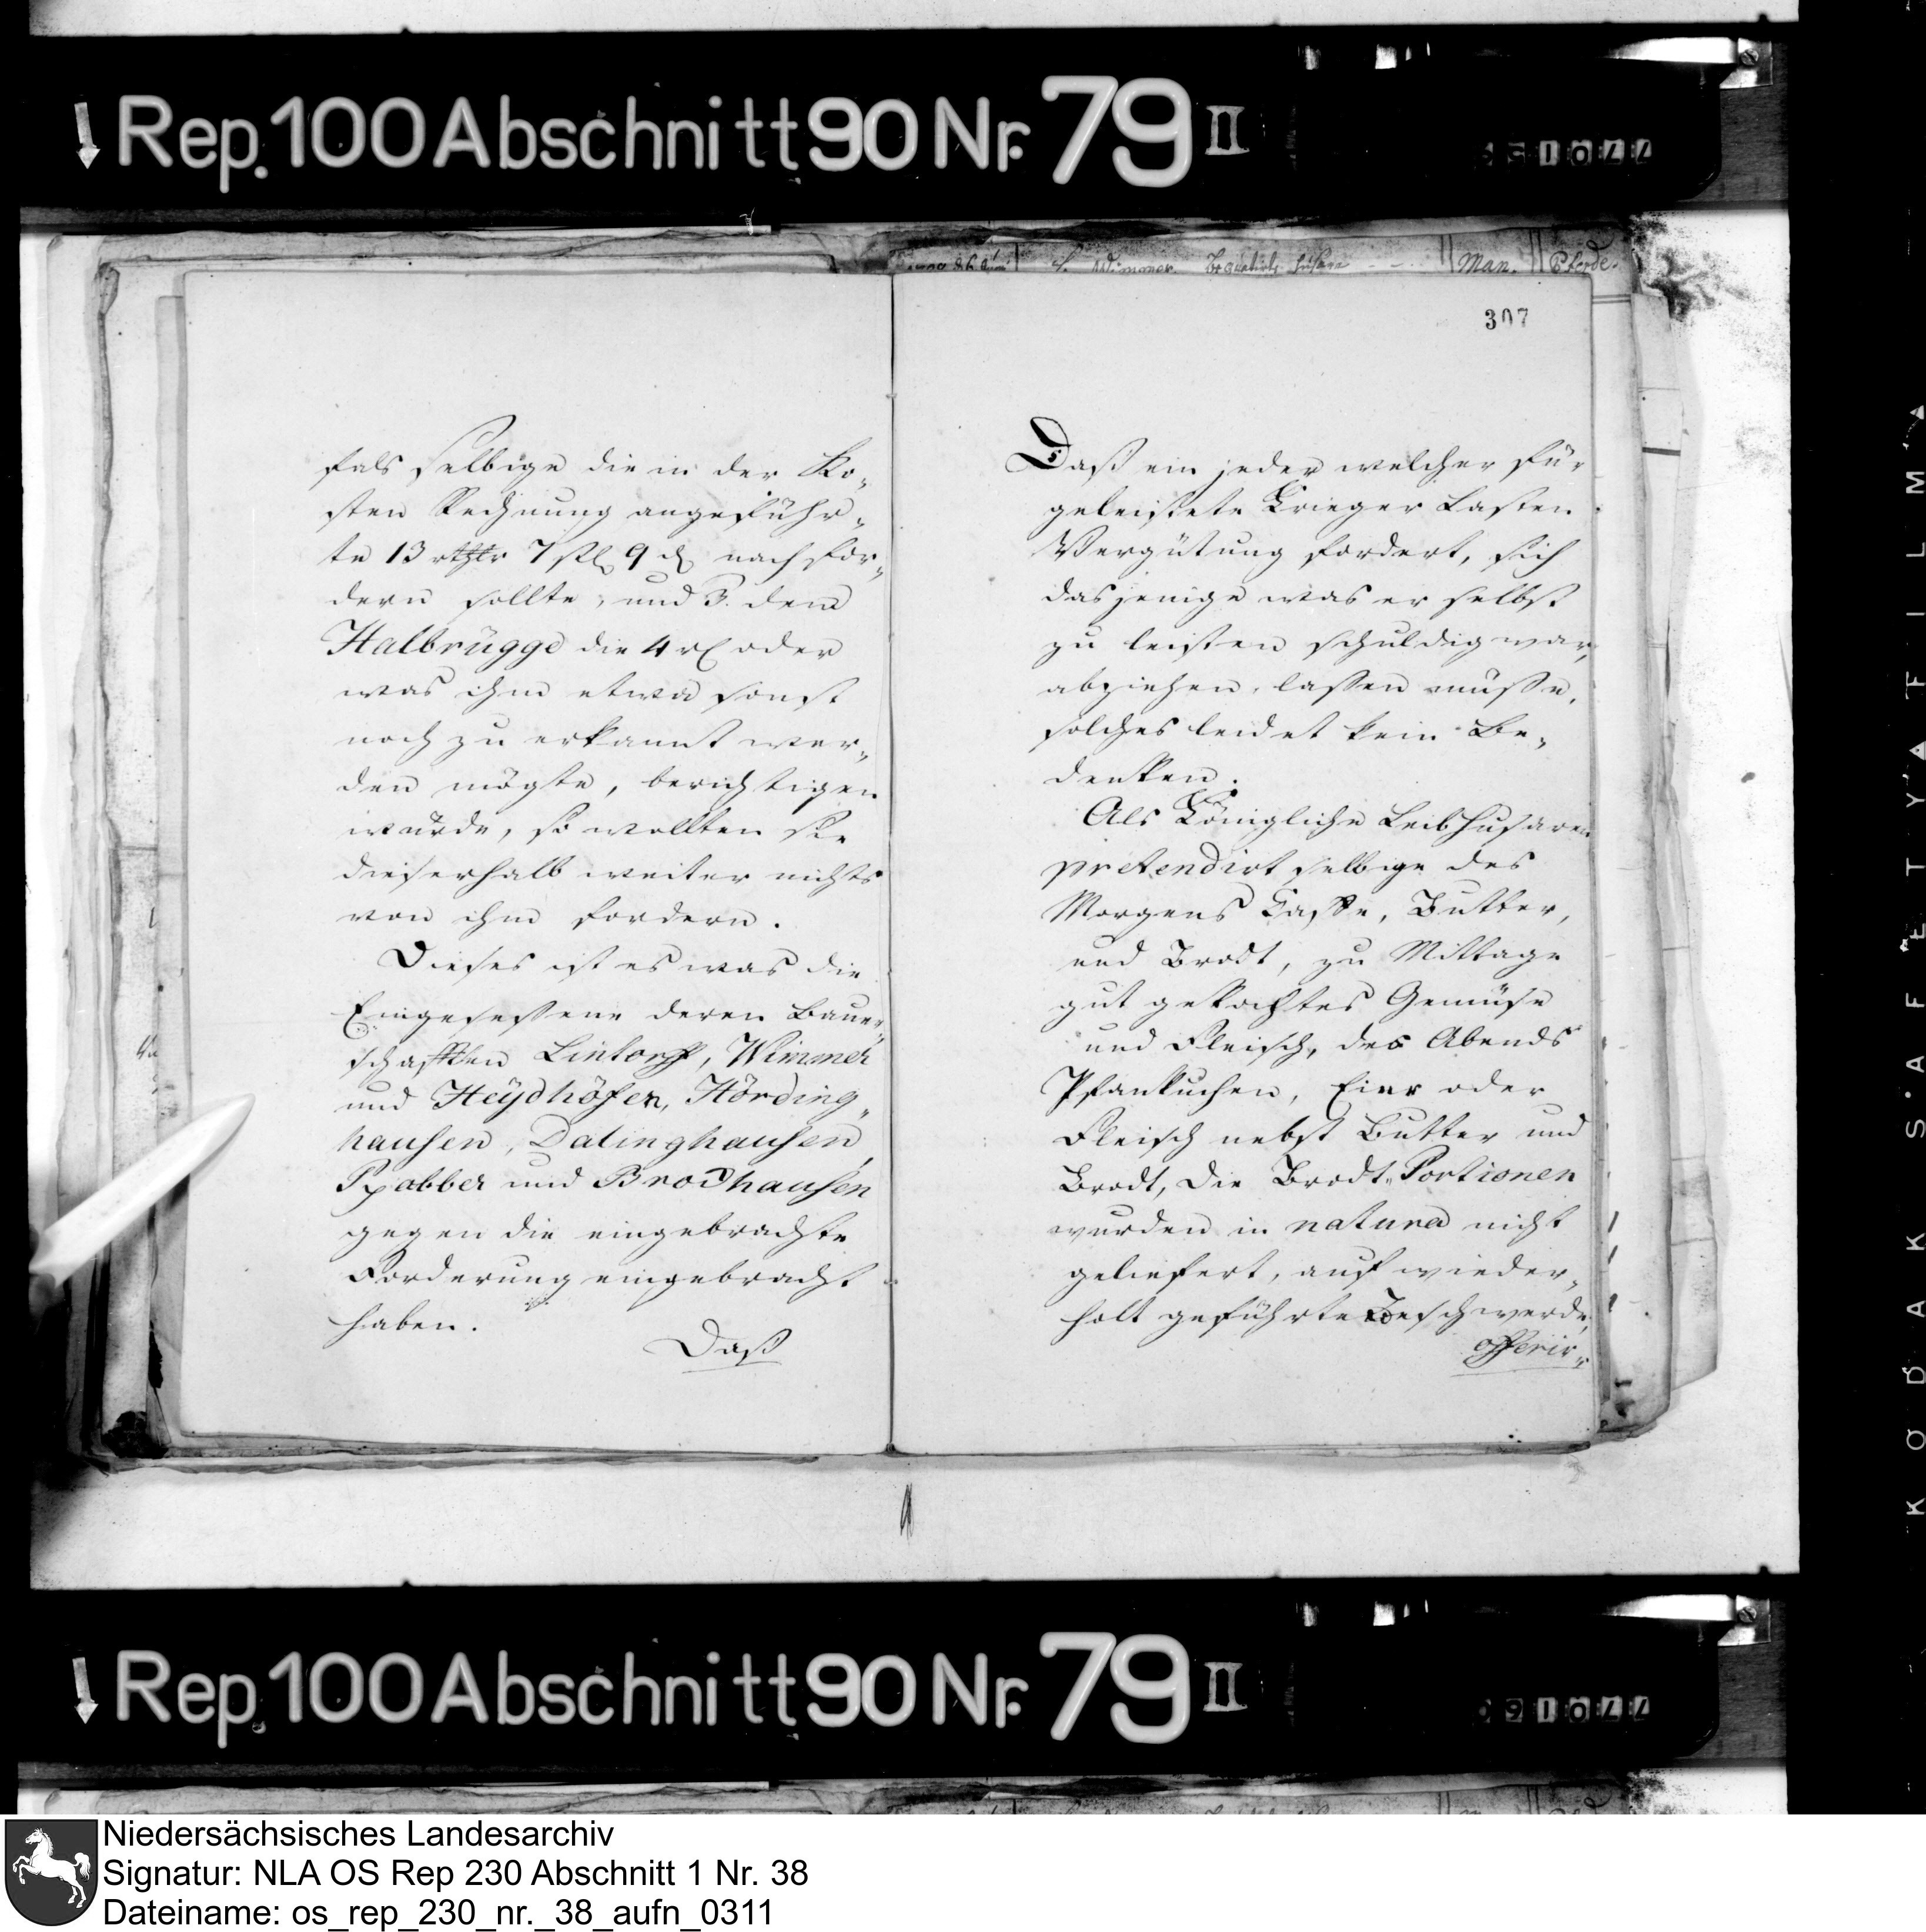 ↓ Rep. 100 Abschnitt 90 Nr. 79 II
Wimmer
Man. Pferde.
307
fals selbige die in der Ko„
sten Rechnung angeführ„
te 13 rthlr 7 ßl 9 d nachfor„
dern sollte, und 3. dem
Halbrügge die 4 rl oder
was ihm etwa sonst
noch zu erkannt wer„
den mögte, berichtigen
würde, so wollten sie
dieserhalb weiter nichts
von ihm fordern.
Dieses ist es was die
Eingesessene deren Bauer„
schafften Lintorff, Wimmer
und Heÿdhöfen, Hörding„
hausen, Datinghausen,
Rabber und Brochausen
gegen die eingebrachte
Forderung eingebracht
haben.
Daß
Daß ein jeder welcher für
geleistete Krieger Lasten
Vergütung fordert, sich
dasjenige was er selbst
zu leisten schuldig war,
abziehen lassen müsse,
solches leidet kein Be„
denken.
Als Königliche Leibhusaren
pretendirt selbige des
Morgens Caffe, Butter,
und Brodt, zu Mittage
gut gekochtes Gemüse
und Fleisch, des Abends
Pfankuchen, Eier oder
Fleisch nebst Butter und
Brodt, die Brodt„Portionen
wurden in natura nicht
geliefert, auf wieder„
holt geführte Beschwerde,
offerir„
↓ Rep. 100 Abschnitt 90 Nr. 79 II
KODAK SAFETY FILM
Niedersächsisches Landesarchiv
Signatur: NLA OS Rep 230 Abschnitt 1 Nr. 38
Dateiname: os_rep_230_nr._38_aufn_0311